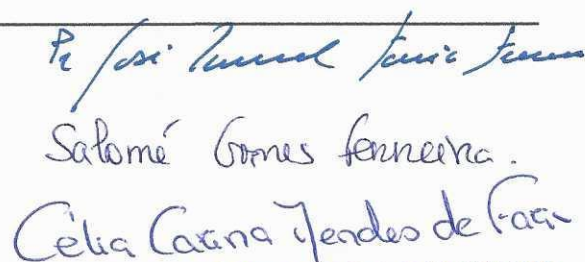 Pe José Manuel Faria Ferreira
Salomé Gomes Ferreira.
Célia Carina Mendes de Faria